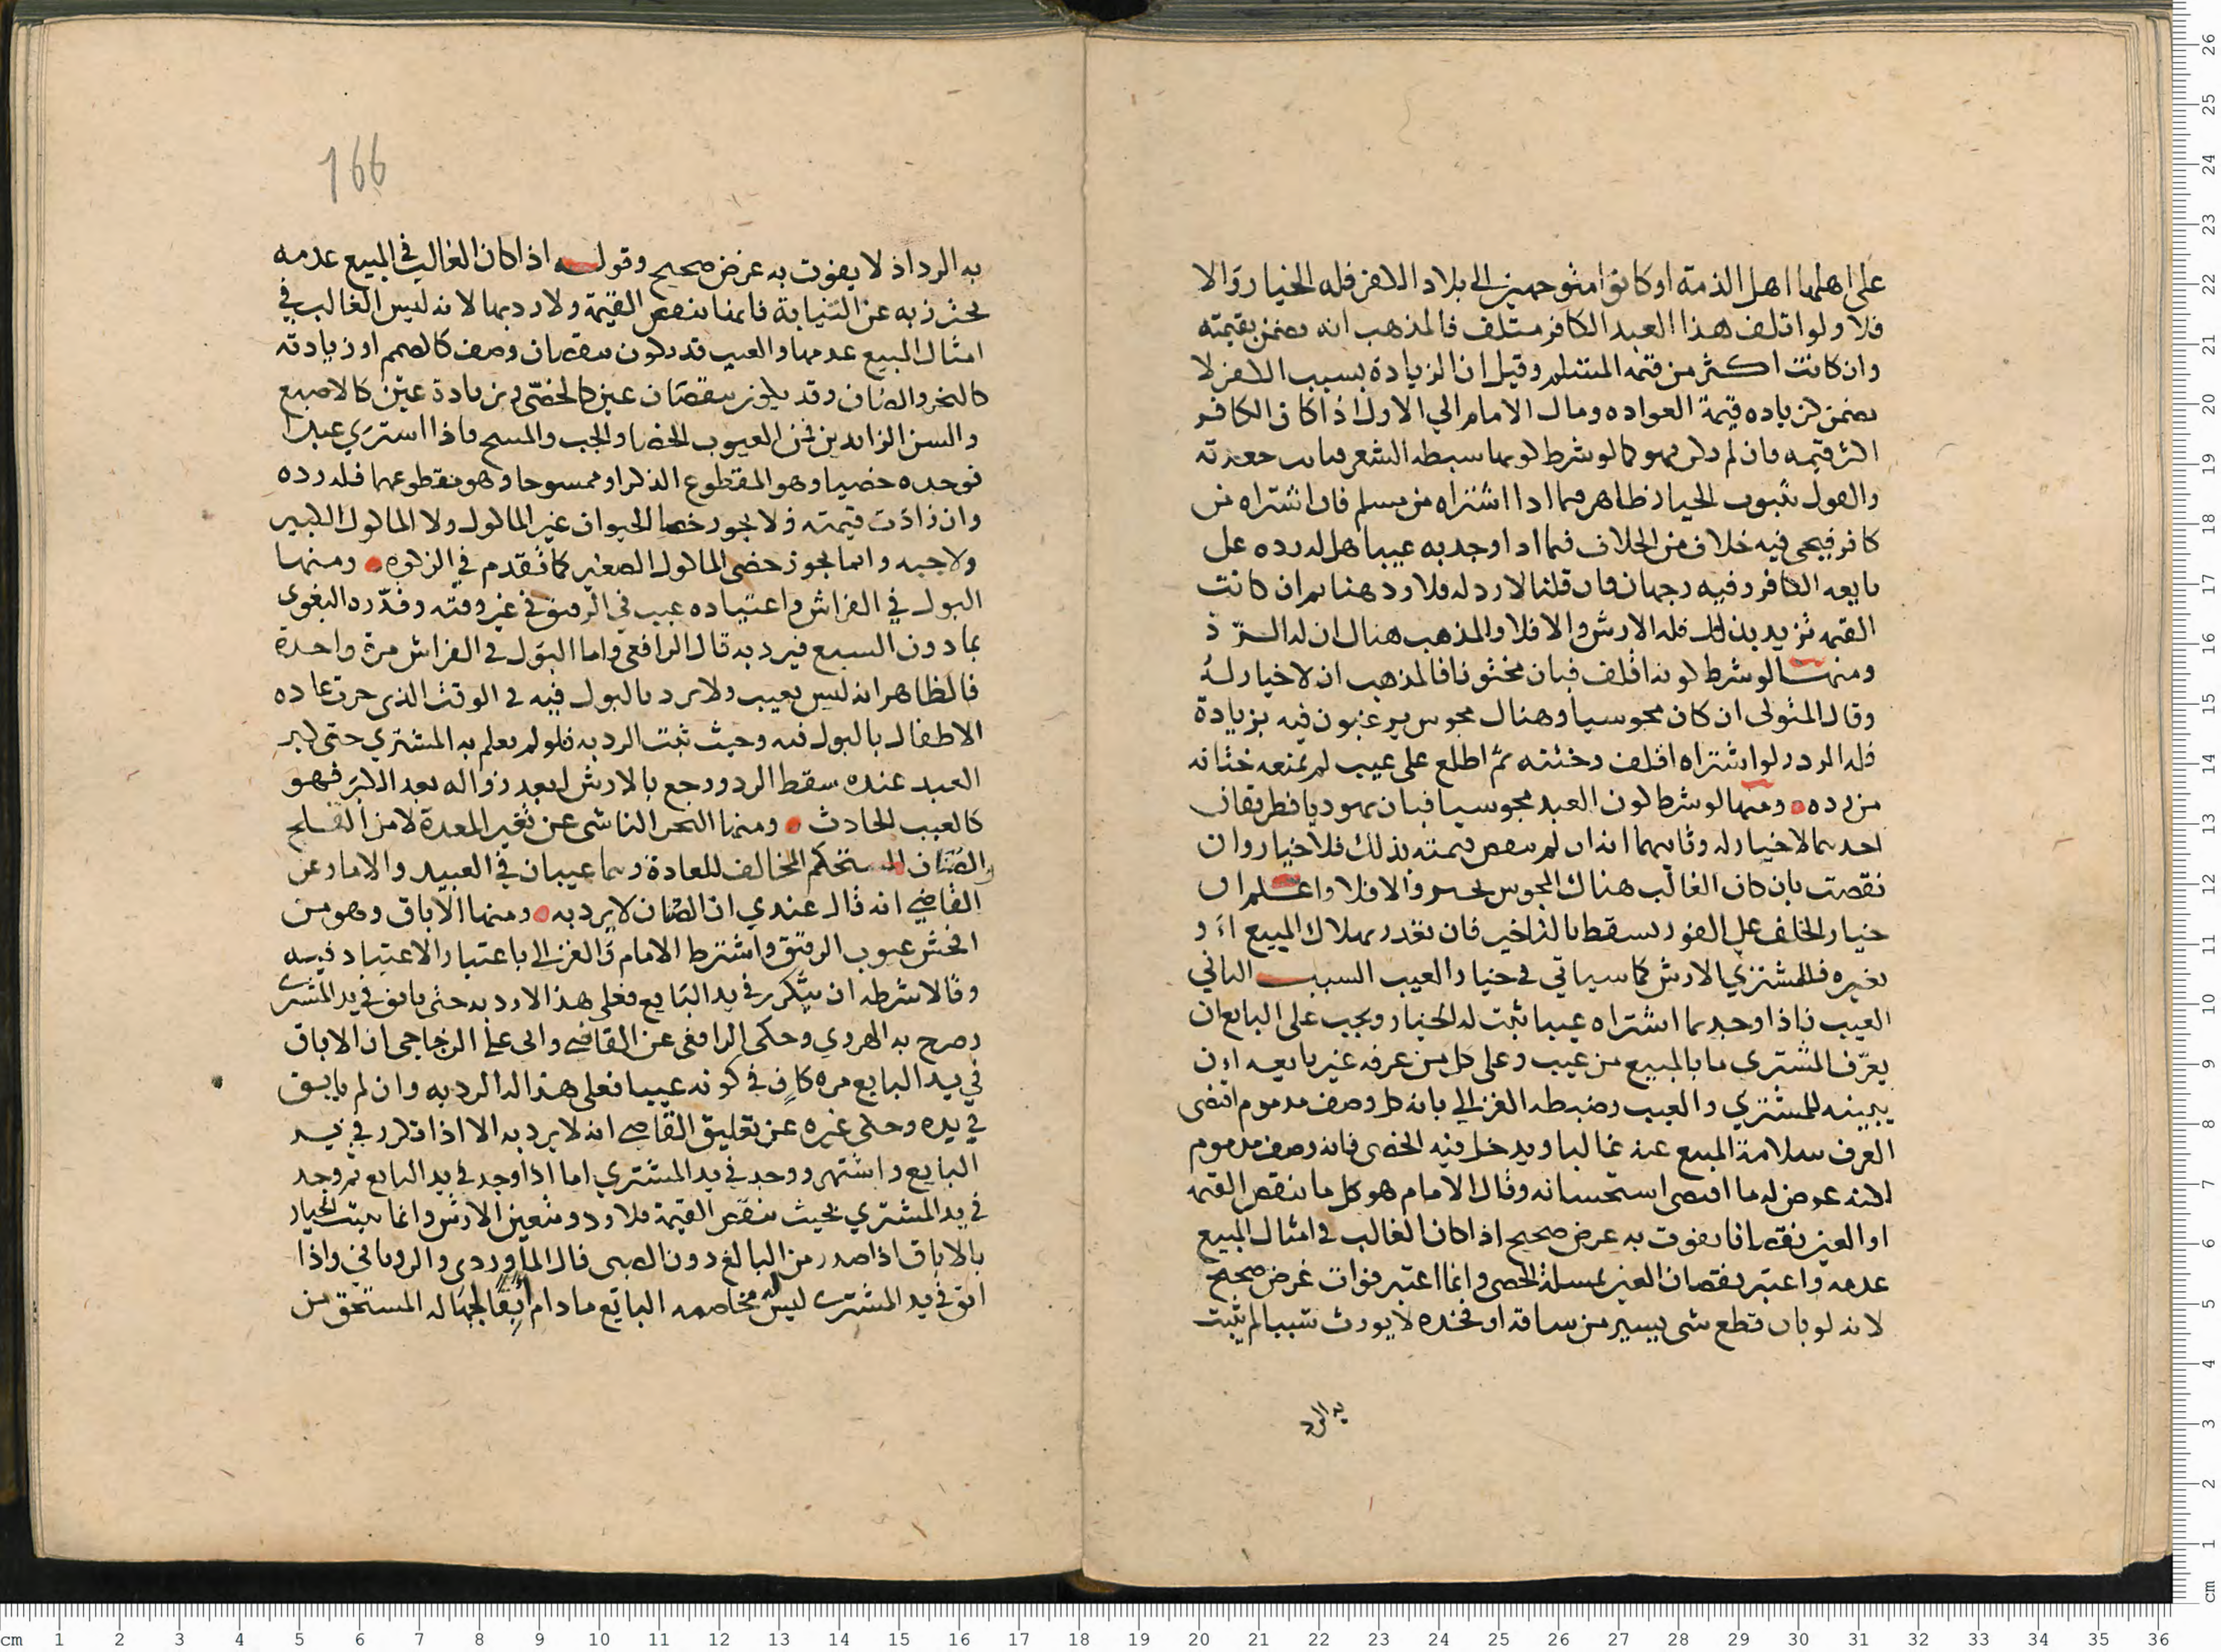 على اهلها اهل الذمة او كانوا متوجهين الى بلاد الكفر فله الخيار والا
فلا ولو اتلف هذا العبد الكافر متلف فالمذهب انه يضمن بقيمته
وان كانت اكثر من قيمة المسلم وقيل ان الزيادة بسبب الكفر لا
يضمن كزيادة قيمة العواده ومال الامام الى الاول اذا كان الكافر
اكثر قيمه فان لم يكن فهو كما لو شرط كونها سبطه الشعر فبانت جعدته
والقول بثبوت الخيار ظاهر فيما اذا اشتراه من مسلم فان اشتراه من
كافر فيجي فيه خلاف من الخلاف فيما اذا وجد به عيبا هل له رده على
بايعه الكافر وفيه وجهان فان قلنا لا رد له فلا رد هنا ثم ان كانت
القيمه تزيد بذلك فله الارش والا فلا والمذهب هناك ان له الرد
ومنها لو شرط كونه اقلف فبان مختونا فالمذهب ان لا خيار له
وقال المتولى ان كان مجوسيا وهناك مجوس يرغبون فيه بزيادة
فله الرد ولو اشتراه اقلف وختنه ثم اطلع على عيب لم يمنعه ختانه
من رده ومنها لو شرط كون العبد مجوسيا فبان يهوديا فطريقان
احدهما لا خيار له وثانيهما انه ان لم ينقص قيمته بذلك فلا خيار وان
نقصت بان كان الغالب هناك المجوس والا فلا واعلم ان
خيار الخلف على الفور يسقط بالتاخير فان تعذر بهلاك المبيع او
بغيره فللمشتري الارش كما سياتي في خيار العيب السبب الثاني
العيب فاذا وجد بما اشتراه عيبا ثبت له الخيار ويجب على البايع ان
يعرف المشتري ما بالمبيع من عيب وعلى كل من عرفه غير بايعه ان
يبينه للمشتري والعيب وضبطه الغزالي بانه كل وصف مدموم اقتضى
العرف سلامة المبيع عنه غالبا ويدخل فيه الخصى فانه وصف مدموم
لكنه عرض له ما اقتضى استحسانه وقال الامام هو كل ما ينقص القيمه
او العين نقصانا يفوت به عرض صحيح اذا كان الغالب في امثال المبيع
عدمه واعتبر نقصان العين لمسلة الخصى وانما اعتبر فوات غرض صحيح
لانه لو بان قطع شي يسير من ساقه او فخذه لا يورث شيبا لم يثبت
به الرد
166
به الرد اذ لا يفوت به عرض صحيح وقوله اذا كان الغالب في المبيع عدمه
يحترز به عن الثيابة فانها تنقص القيمة ولا رد بها لانه ليس الغالب في
امثال المبيع عدمها والعيب قد يكون بنقصان وصف كالصمم او زيادته
كالبخر والصنان وقد يكون بنقصان عين كالخصى وبزيادة عين كالاصبع
والسن الزايدين فمن العيوب الخصا والجب والمسح فاذا اشترى عبدا
فوجده خصيا وهو المقطوع الذكر او ممسوحا وهو مقطوعهما فله رده
وان زادت قيمته ولا يجوز خصا الحيوان غير الماكول ولا الماكول الكبير
ولا جبه وانما يجوز خصى الماكول الصغير كما تقدم في الزكوه ومنها
البول في الفراش واعتياده عيب في الرقيق في غير وقته وقدره البغوى
بما دون السبع فيرد به قال الرافعى واما البول في الفراش مرة واحدة
فالظاهر انه ليس بعيب ولا يرد بالبول فيه في الوقت الذي جرت عاده
الاطفال بالبول فيه وحيث ثبت الرد به فلو لم يعلم به المشتري حتى كبر
العبد عنده سقط الرد ورجع بالارش لبعد زواله بعد الكبر فهو
كالعيب الحادث ومنها البخر الناشى عن تغير المعدة لا من القلح
والصنان المستحكم المخالف للعادة وهما عيبان في العبيد والاما وعن
القاضي انه قال عندي ان الصنان لا يرد به ومنها الاباق وهو من
افحش عيوب الرقيق واشترط الامام والغزالي باعتبار الاعتياد فيه
وقالا شرطه ان يتكرر في يد البايع فعلى هذا لا رد به حتى يابق في يد المشترى
وصرح به الهروي وحكى الرافعى عن القاضي وابى على الزجاجى ان الاباق
في يد البايع مره كاف في كونه عيبا فعلى هذا له الرد به وان لم يابق
في يده وحكى غيره عن تعليق القاضي انه لا يرد به الا اذا تكرر في يد
البايع واشتهر ووجد في يد المشتري اما اذا وجد في يد البايع ثم وجد
في يد المشتري بحيث ينقص القيمة فلا رد ويتعين الارش وانما يثبت الخيار
بالاباق اذا صدر من البالغ دون الصبى قال الماوردى والرويانى واذا
ابق في يد المشترى ليس له مخاصمه البائع ما دام آبقا لجهاله المستحق من